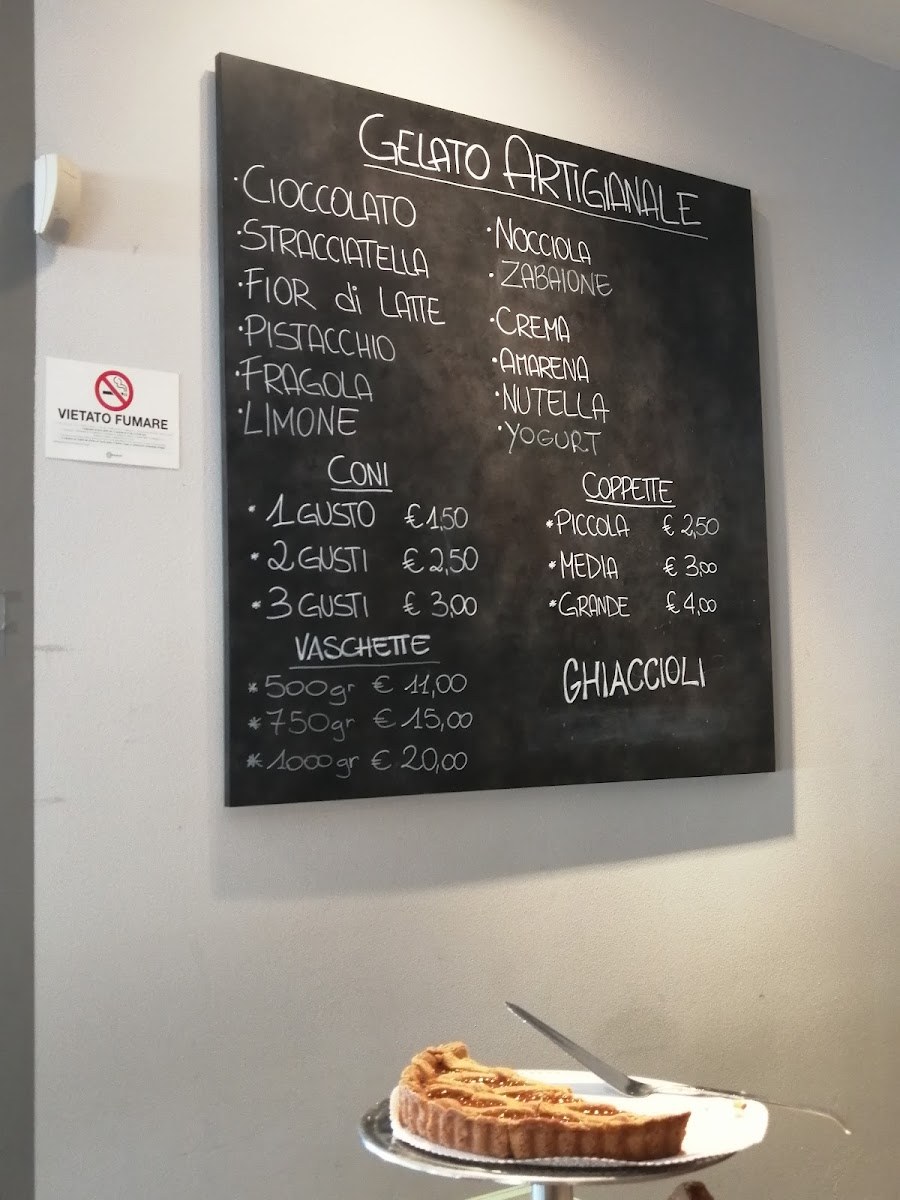 GELATO ARTIGIANALE
·CIOCCOLATO
·STRACCIATELLA
·FIOR di LATTE
·PISTACCHIO
·FRAGOLA
·LIMONE
·NOCCIOLA
·ZABAIONE
·CREMA
·AMARENA
·NUTELLA
·YOGURT
CONI
* 1 GUSTO € 1,50
* 2 GUSTI € 2,50
* 3 GUSTI € 3,00
COPPETTE
*PICCOLA € 2,50
*MEDIA € 3,00
*GRANDE € 4,00
VASCHETTE
*500gr € 11,00
*750gr € 15,00
*1000gr € 20,00
GHIACCIOLI
VIETATO FUMARE